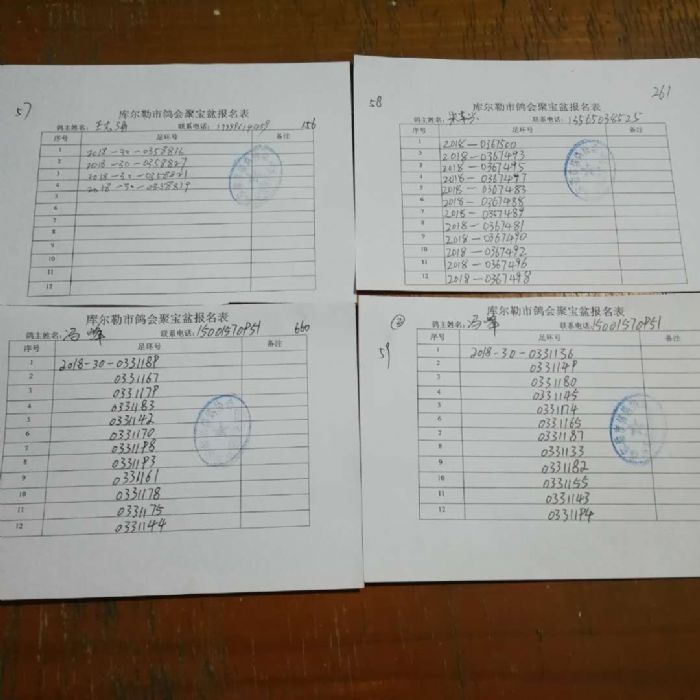 57
库尔勒市鸽会聚宝盆报名表
鸽主姓名: 联系电话: 156
序号 足环号 备注
1 2018-30-0358816
2 2018-30-0358827
3 2018-30-0358821
4 2018-30-0358819
5
6
7
8
9
10
11
12
58
261
库尔勒市鸽会聚宝盆报名表
鸽主姓名: 联系电话: 13565034525
序号 足环号 备注
1 2018-0367500
2 2018-0367493
3 2018-0367495
4 2018-0367497
5 2018-0367483
6 2018-0367488
7 2018-0367489
8 2018-0367481
9 2018-0367490
10 2018-0367492
11 2018-0367496
12 2018-0367498
库尔勒市鸽会聚宝盆报名表
鸽主姓名: 冯峰 联系电话: 15001570951 660
序号 足环号 备注
1 2018-30-0331189
2 0331167
3 0331179
4 0331183
5 0331142
6 0331170
7 0331198
8 0331193
9 0331161
10 0331178
11 0331175
12 0331144
59
②
库尔勒市鸽会聚宝盆报名表
鸽主姓名: 冯峰 联系电话: 15001570951
序号 足环号 备注
1 2018-30-0331136
2 0331149
3 0331180
4 0331145
5 0331174
6 0331165
7 0331187
8 0331133
9 0331182
10 0331155
11 0331143
12 0331194